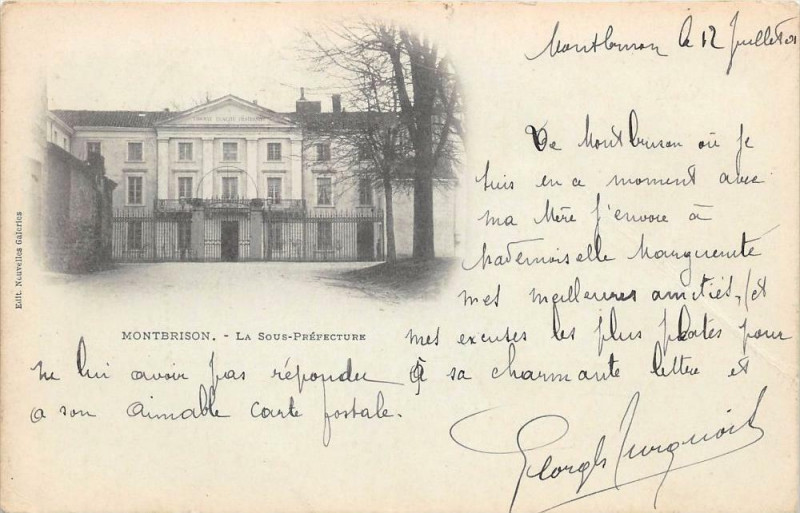 Montbrison le 12 Juillet 01
De Montbrison où je
suis en ce moment avec
ma Mère j'envoie à
Mademoiselle Marguerite
mes meilleures amitiés, et
mes excuses les plus plates pour
ne lui avoir pas répondu à sa charmante lettre et
a son aimable carte postale.
Georges
MONTBRISON. - LA SOUS-PRÉFECTURE
Edit. Nouvelles Galeries